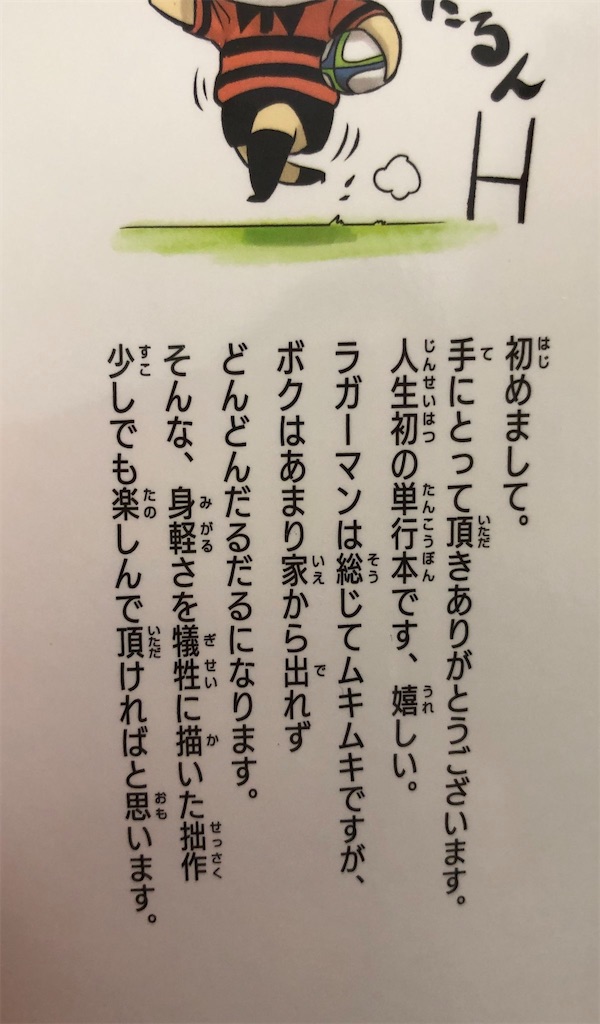 たるん
初めまして。
手にとって頂きありがとうございます。
人生初の単行本です、嬉しい。
ラガーマンは総じてムキムキですが、
ボクはあまり家から出れず
どんどんだるだるになります。
そんな、身軽さを犠牲に描いた拙作
少しでも楽しんで頂ければと思います。